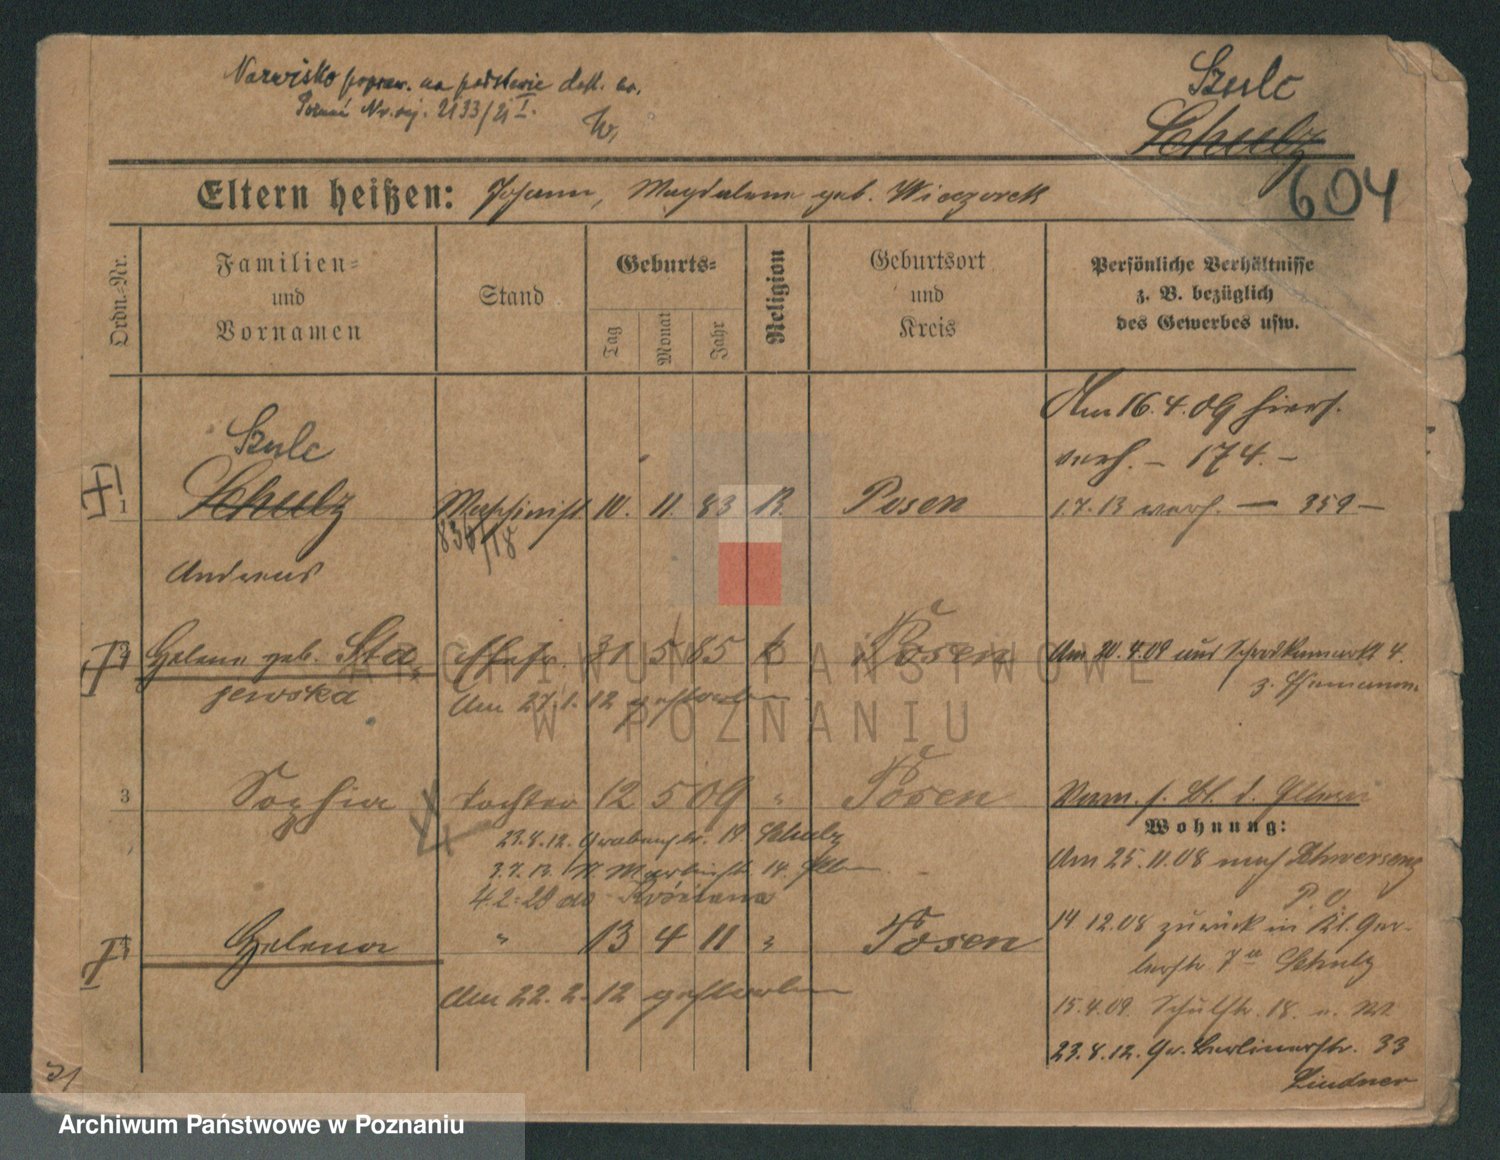 Nazwisko popraw. na podstawie dok. ur.
Poznań Nr. rej. 2133/21 I.
Szulc
Schulz
604
Eltern heißen: Johann, Magdalena geb. Wieczorek
Ordn.-Nr.
Familien-
und
Vornamen
Stand
Geburts-
Tag
Monat
Jahr
Religion
Geburtsort
und
Kreis
Persönliche Verhältnisse
z. B. bezüglich
des Gewerbes usw.
Am 16.4.09 hiers.
verh. – 174. –
Szulc
1 Schulz Maschinist 10. 11. 83 Posen 1.7.13 verh. — 359 —
836/18
Andreas
Helene geb. Sta- Ehefr. 31 5 85 k Posen Am 20.4.09 4.
jewska Am 27.1.12 gestorben
3 Sophia Tochter 12 5 09 " Posen
Wohnung:
23.8.12. Grabenstr. 19 Schulz
3.7.13. 14.
4.2.20 do
Am 25.11.08 nach Schwersenz
P. O.
Helena " 13 4 11 " Posen
14 12.08 zurück in Kl. Ger-
berstr 7a Schulz
Am 22.2.12 gestorben
15.4.09. Schulstr. 18.
23.8.12. Gr. Berlinerstr. 33
Lindner
ARCHIWUM PAŃSTWOWE
W POZNANIU
Archiwum Państwowe w Poznaniu